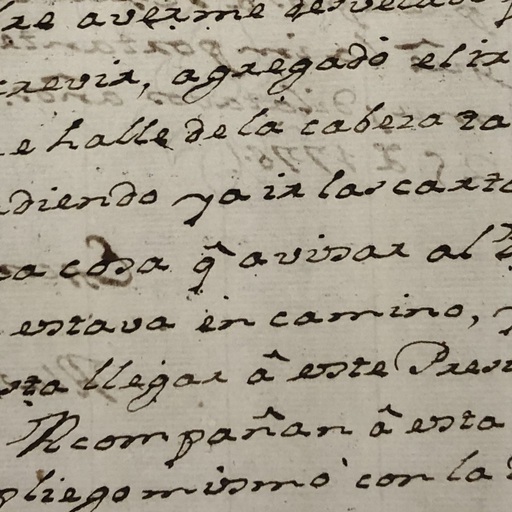 re averme desvelado
crevir, agregado el ir
e halle de la cabeza ta
diendo ya ir las carta
a cosa q̂ avisar al
estava en camino,
sta llegar â este Presi
Acompañan â esta
pliego mismo con la